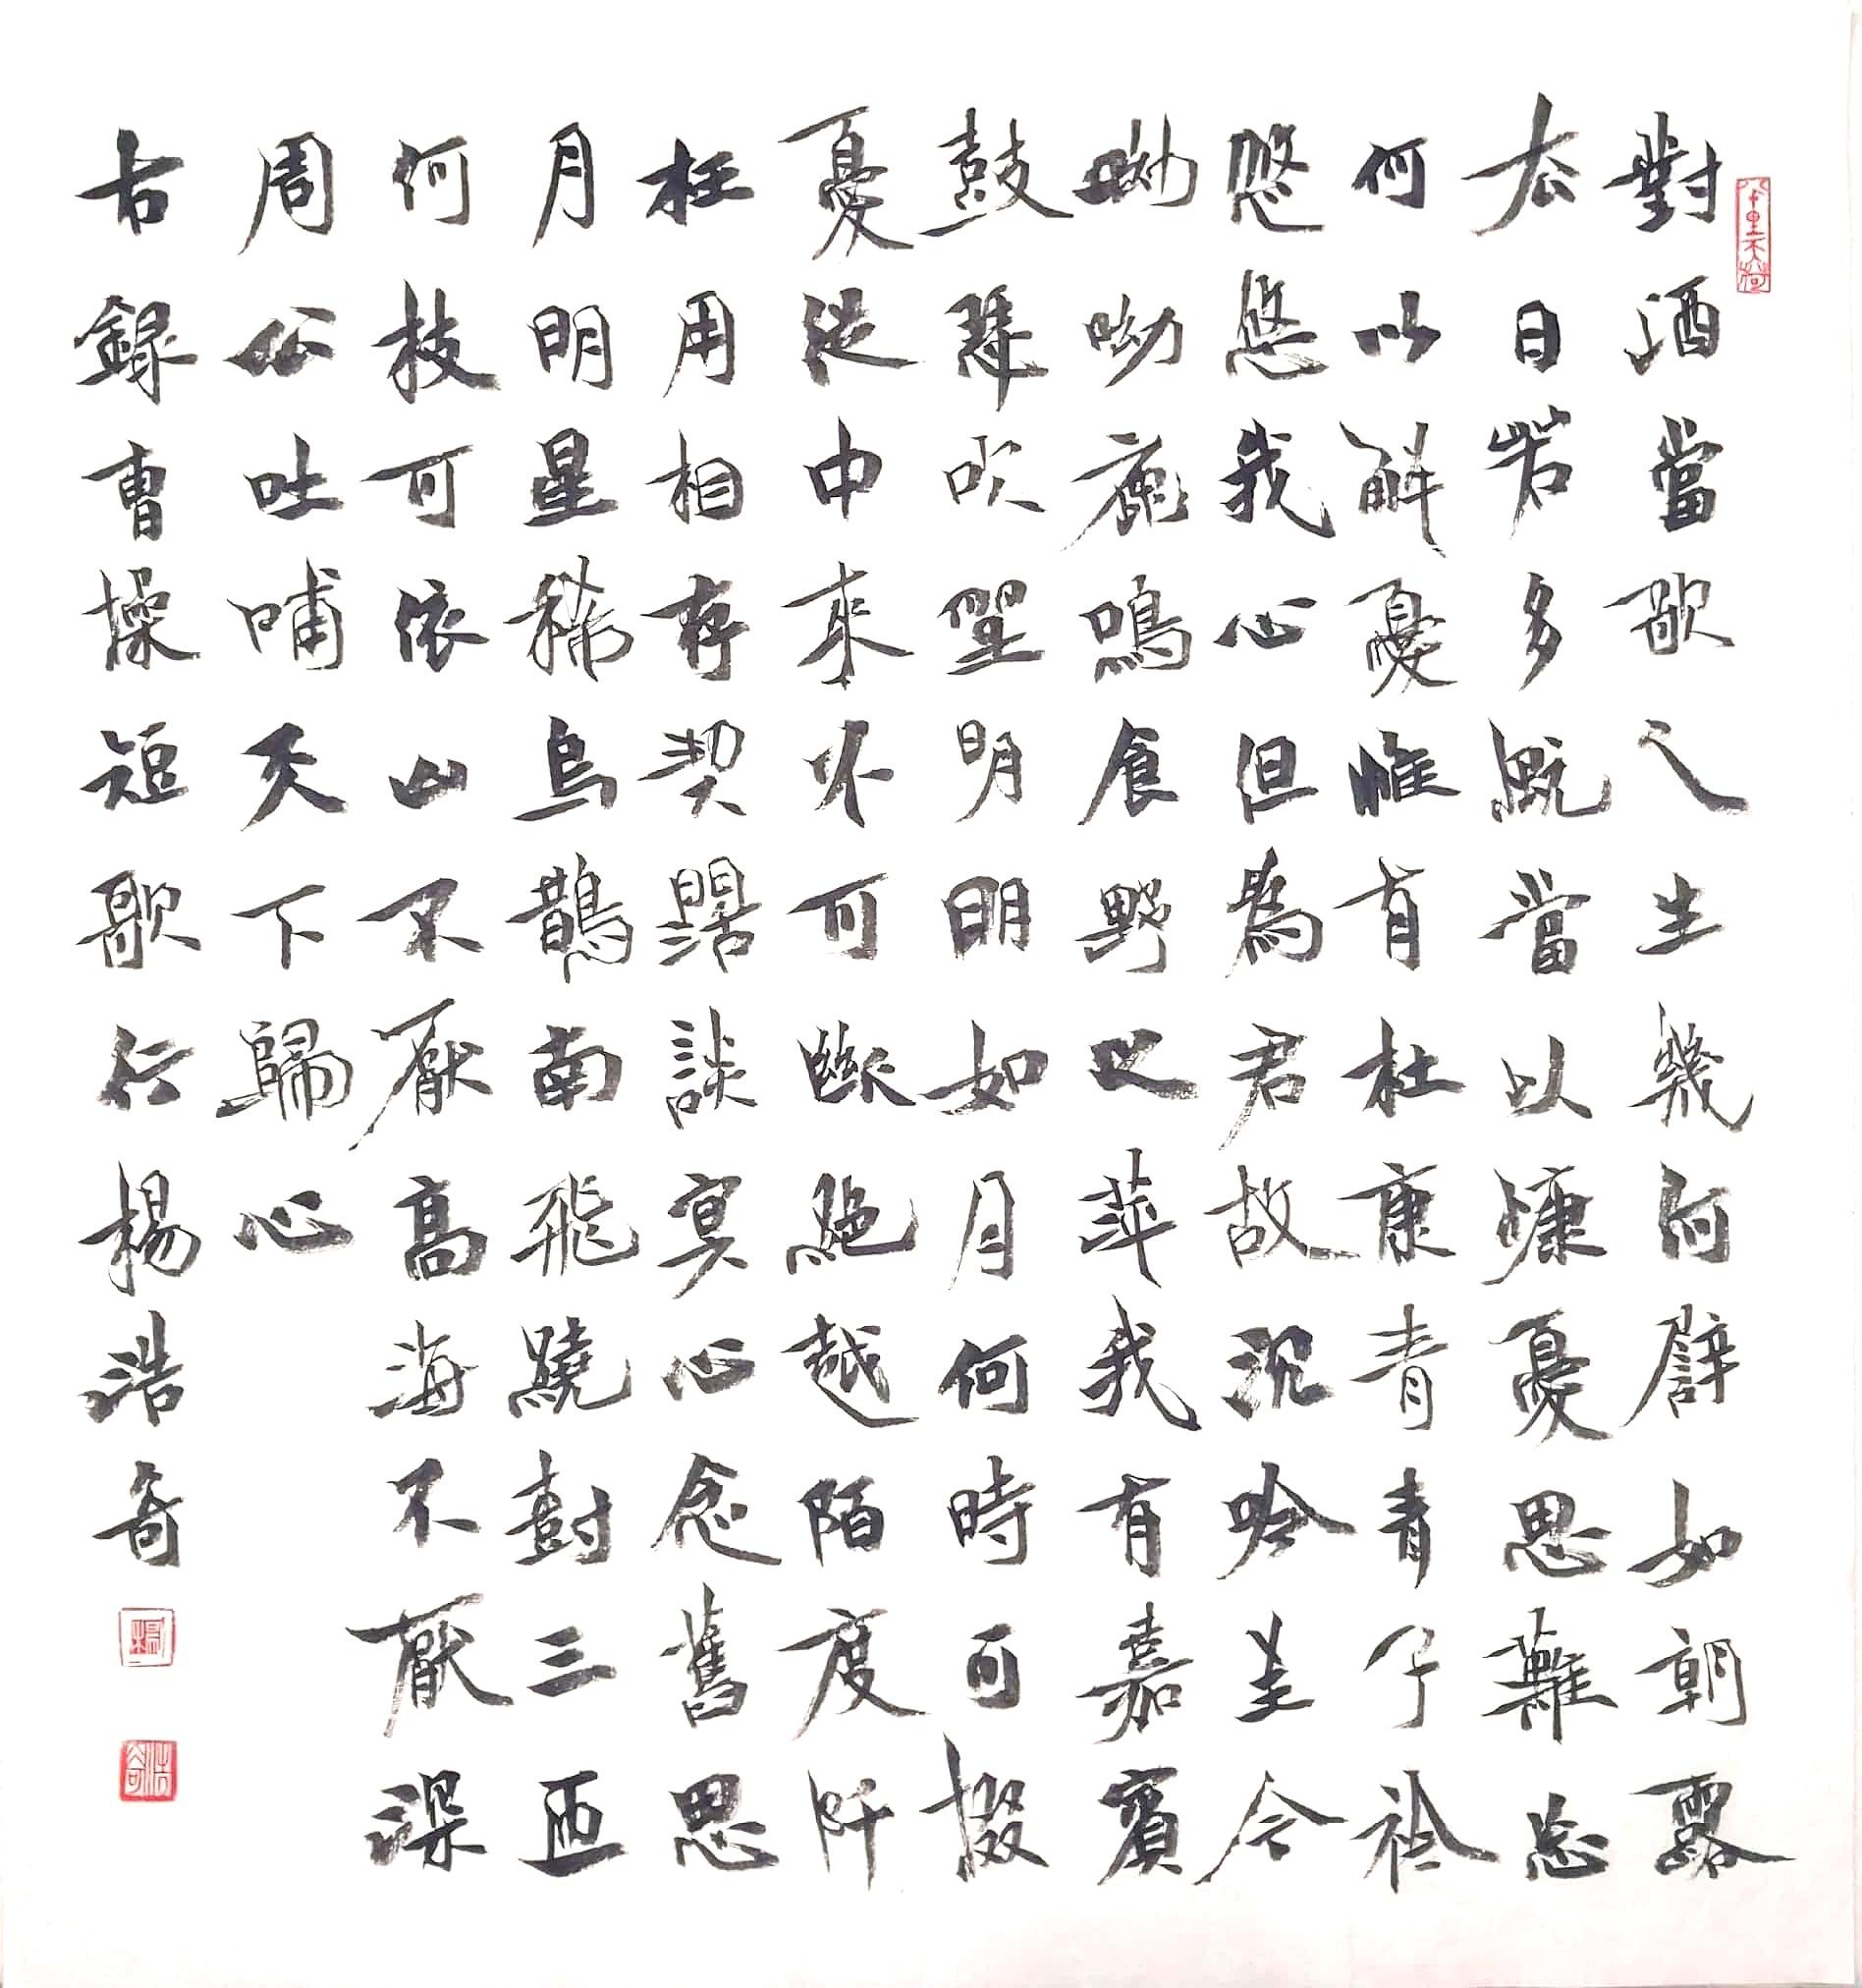 對酒當歌人生幾何譬如朝露
去日苦多慨當以慷憂思難忘
何以解憂惟有杜康青青子衿
悠悠我心但為君故沉吟至今
呦呦鹿鳴食野之萍我有嘉賓
鼓瑟吹笙明明如月何時可掇
憂從中來不可斷絕越陌度阡
枉用相存契闊談宴心念舊恩
月明星稀烏鵲南飛繞樹三匝
何枝可依山不厭高海不厭深
周公吐哺天下歸心
右錄曹操短歌行楊浩奇
楊
浩奇